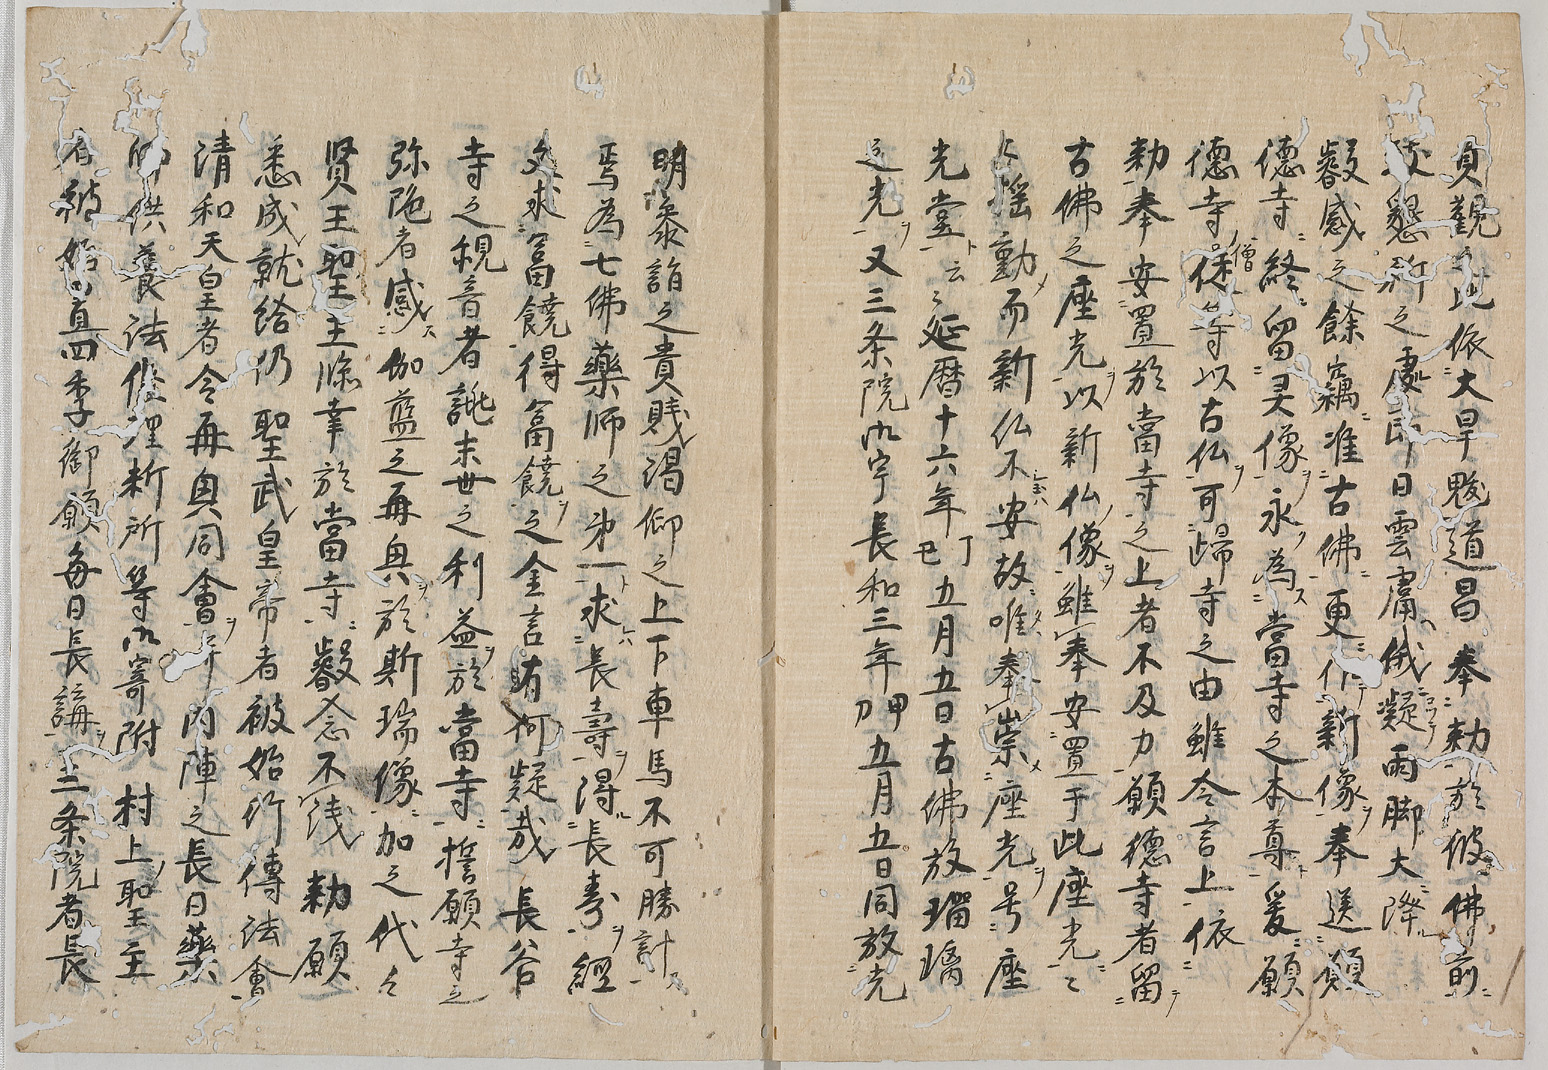 貞観之比依大旱魃道昌奉勅於彼佛前
致懇祈之處即日雲膚俄凝雨脚大降
叡感之餘竊准古佛更作新像奉送願
德寺終留灵像永為當寺之本尊爰願
德寺僧侶等以古仏可歸寺之由雖令言上依
勅奉安置於當寺之上者不及力願德寺者留
古佛之座光以新仏像雖奉安置于此座光〻
上揺動而新仏不安故唯奉崇座光号座
光堂云〻延暦十六年丁巳五月五日古佛放瑠璃
之光又三条院御宇長和三年甲刀五月五日同放光
明衆詣之貴賎渇仰之上下車馬不可勝計
焉為七佛藥師之第一求長壽得長寿経
文求富饒得富饒之金言有何疑哉長谷
寺之観音者誂末世之利益於當寺誓願寺之
弥陁者感伽藍之再興於斯瑞像加之代々
賢王聖主臨幸於當寺叡念不浅勅願
悉成就給仍聖武皇帝者被始行傳法會
清和天皇者令再興同會内陣之長日藥
師供養法修理新所等御寄附村上聖主
者被始置四季御願毎日長講三条院者長